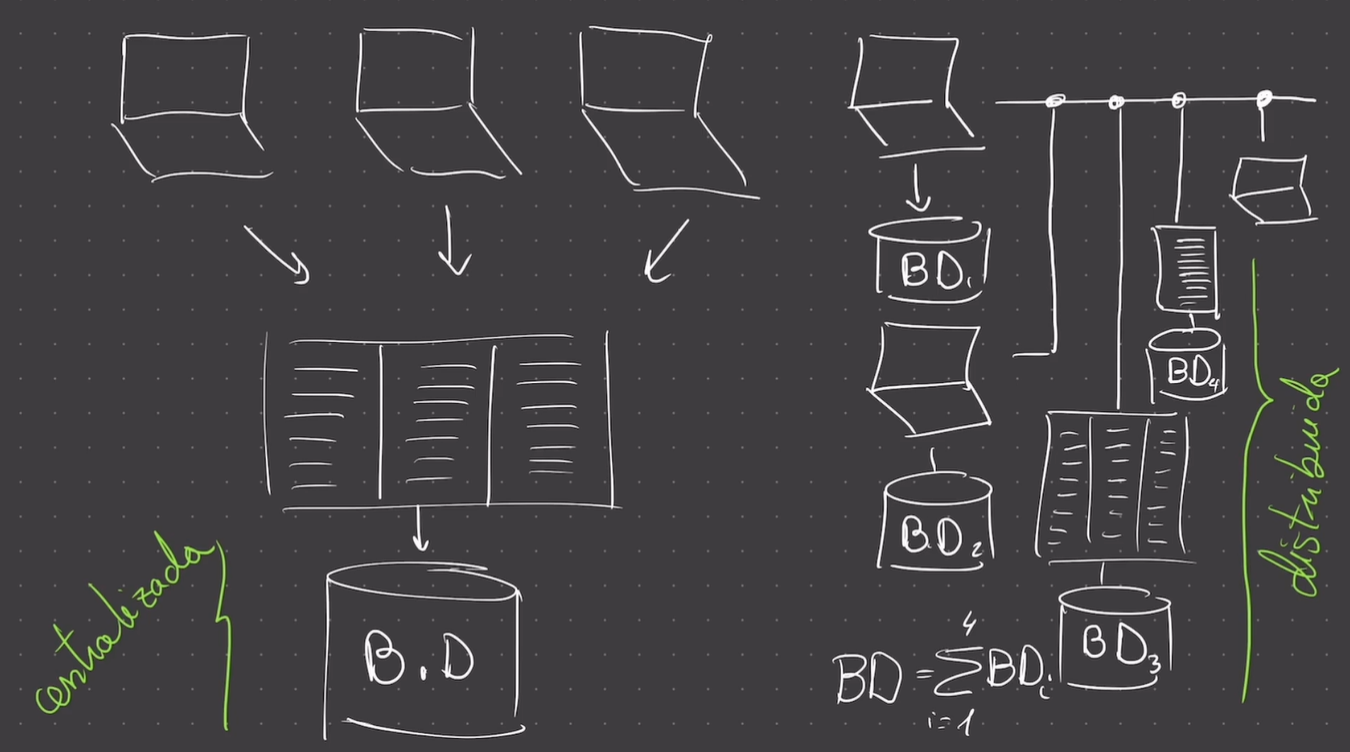 centralizada
B.D
BD1
BD2
BD4
BD3
BD = 4∑i=1 BDi
distribuida